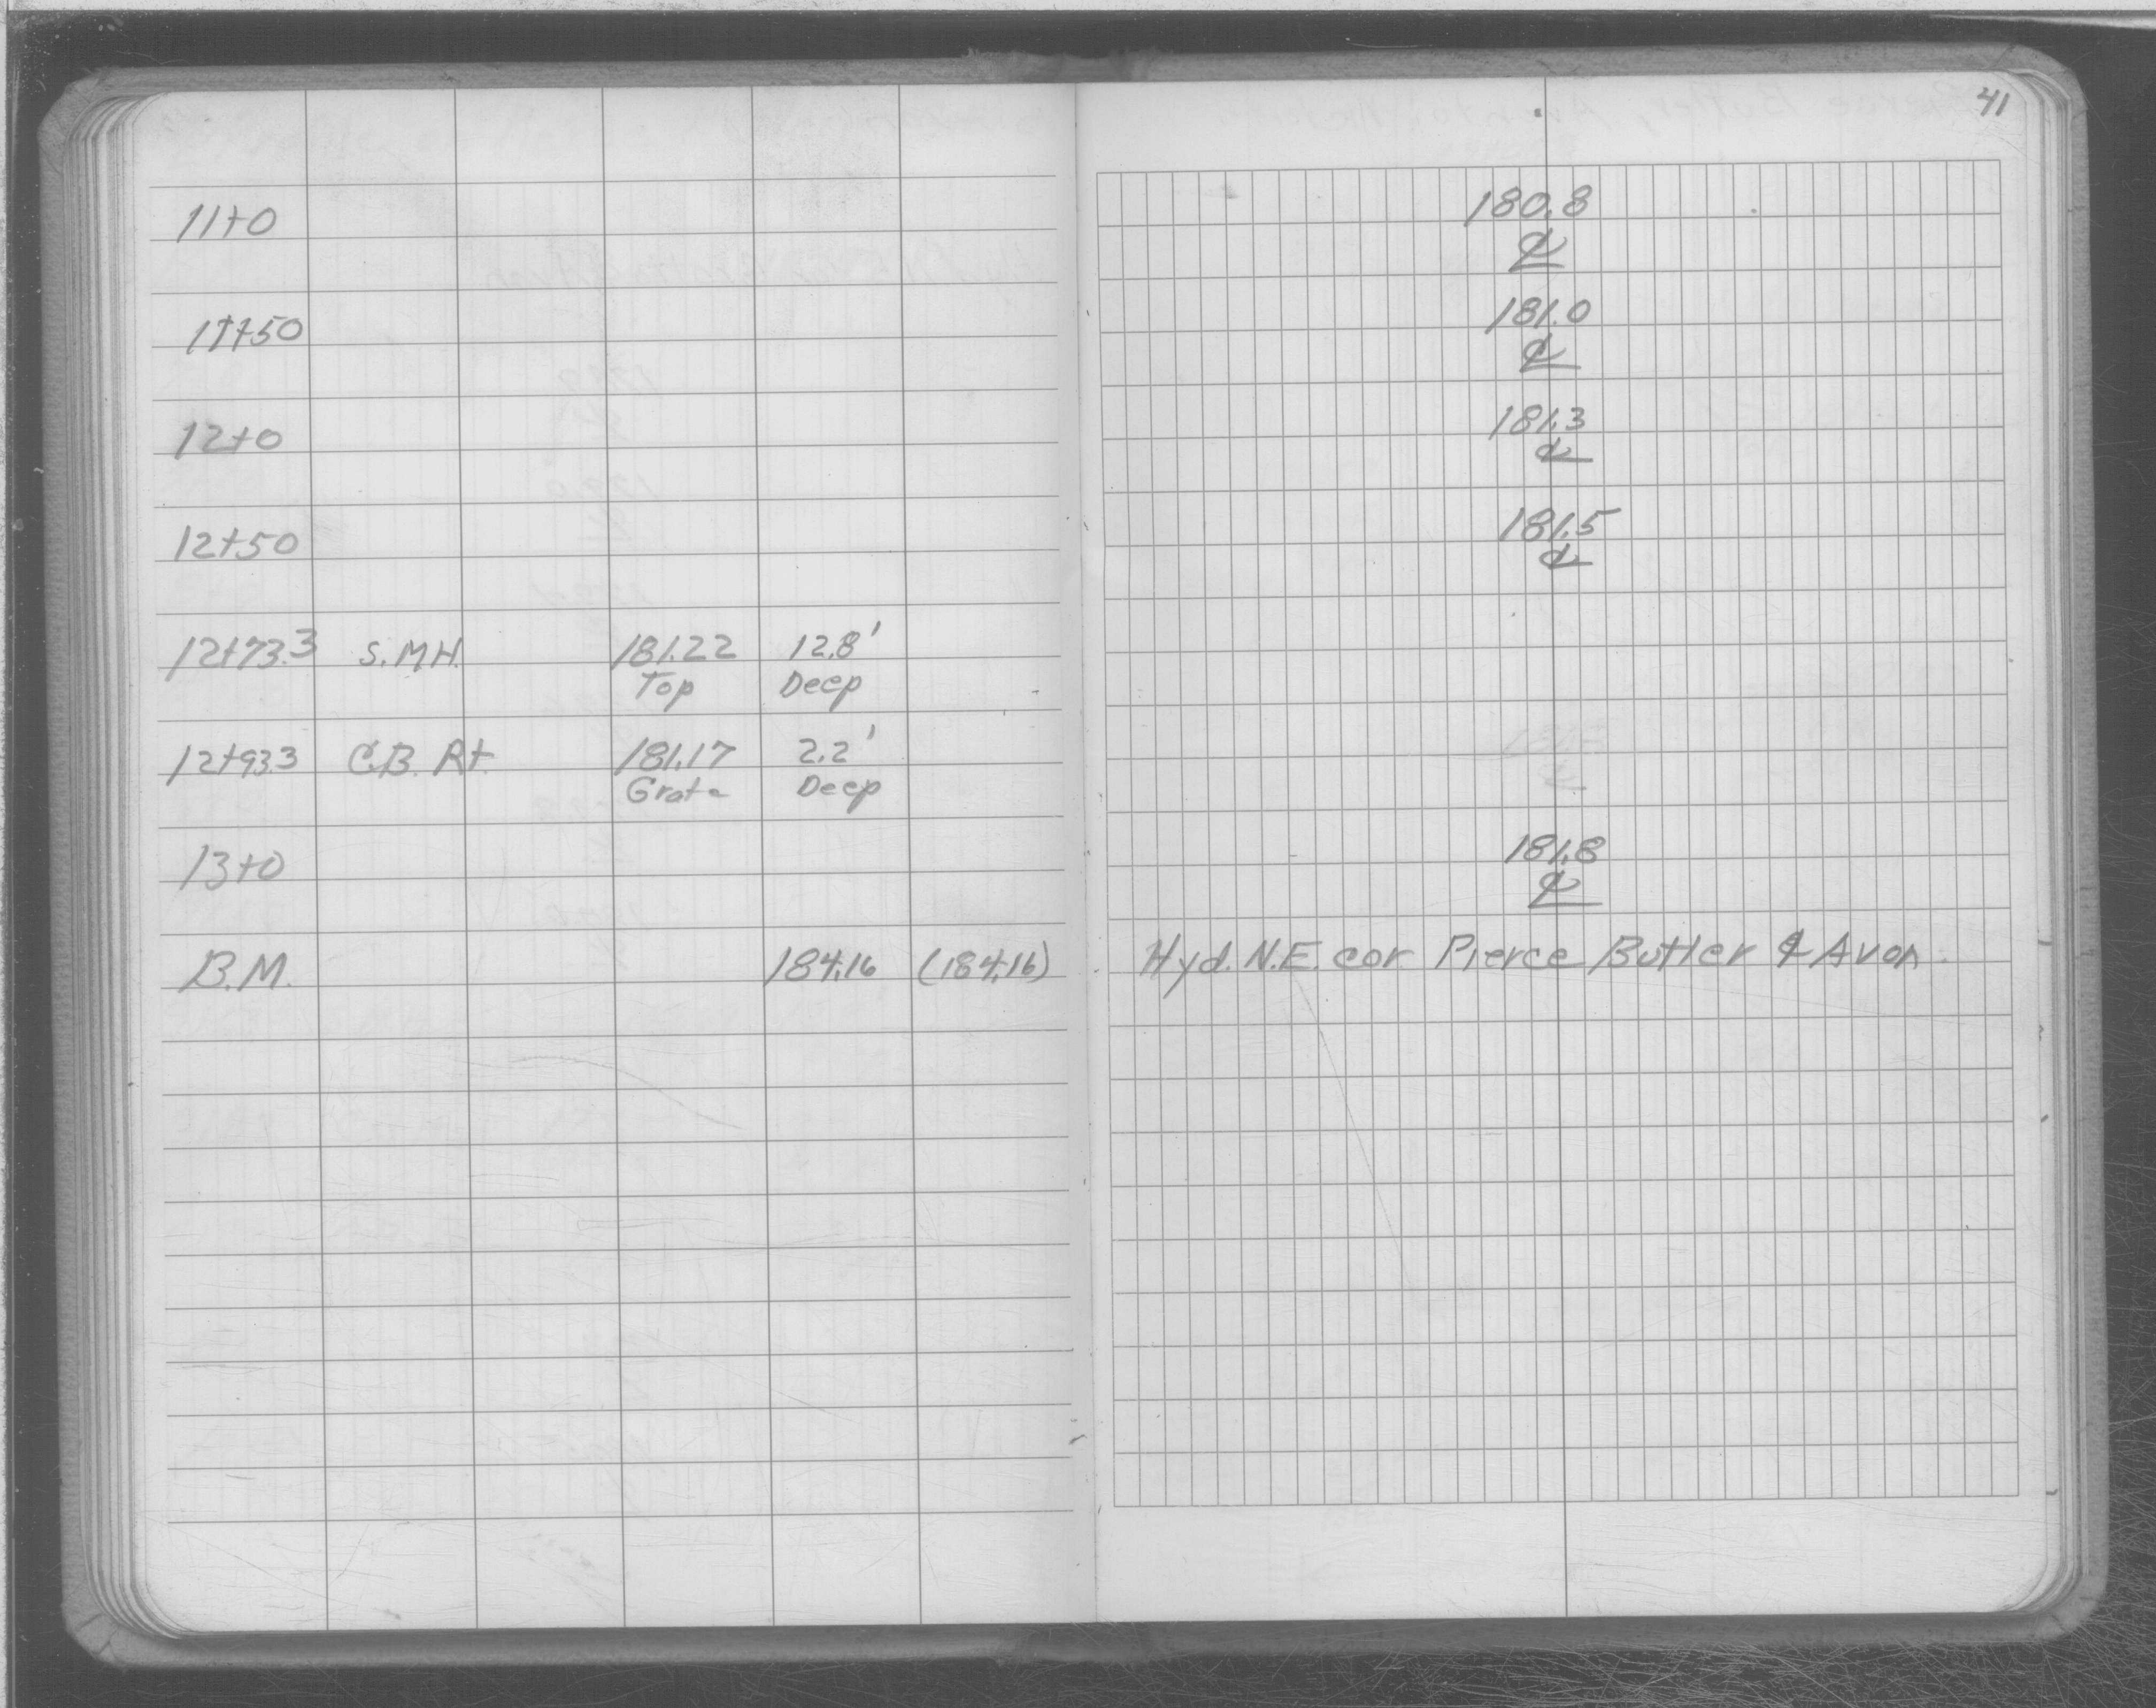 41
11+0 180.8
℄
11+50 181.0
℄
12+0 181.3
℄
12+50 181.5
℄
12+73.3 S.M.H. 181.22 12.8'
Top Deep
12+93.3 C.B. Rt. 181.17 2.2'
Grate Deep
13+0 181.8
℄
B.M. 184.16 (184.16) Hyd. N.E. cor. Pierce Butler & Avon.